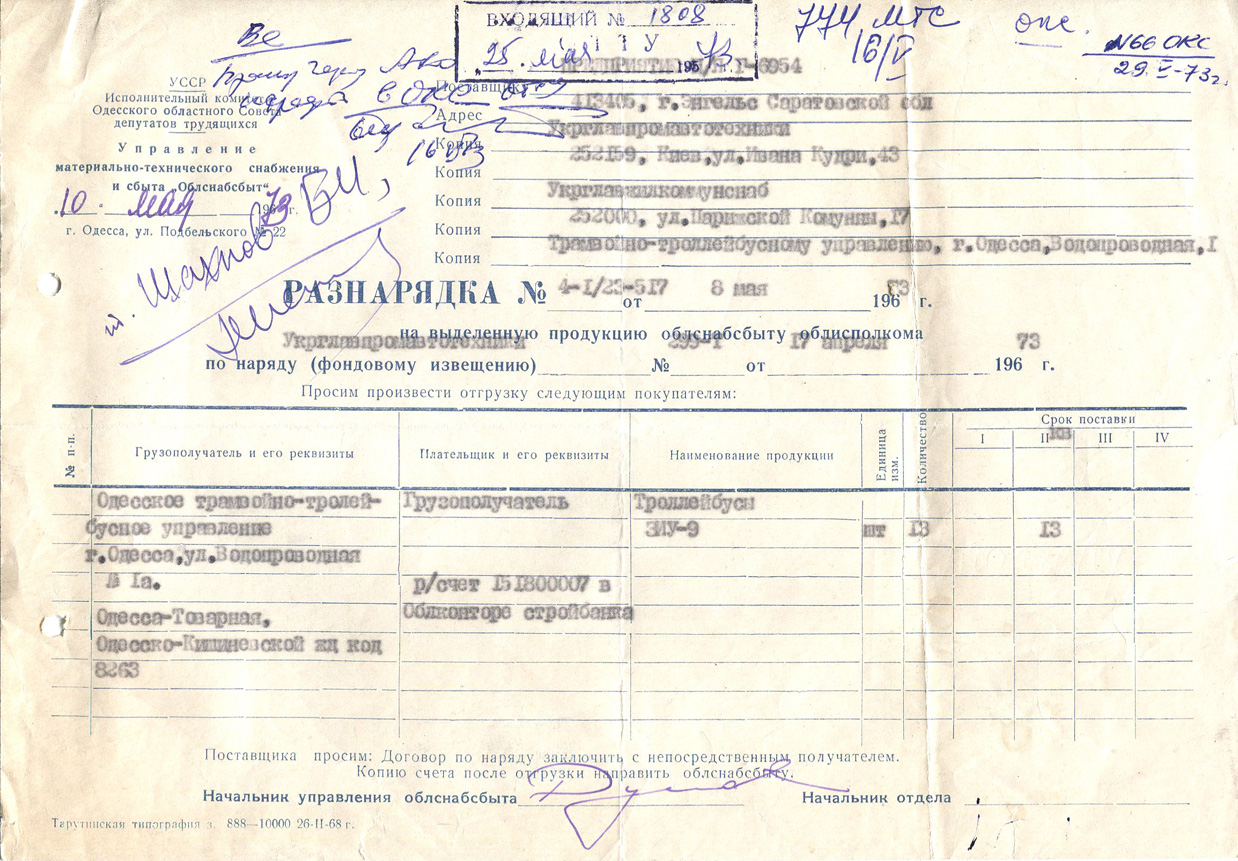 ВХОДЯЩИЙ № 1808
ТТУ
25. мая 1973
774 МТС
16/V
опс.
N66 ОКС
29.V-73г.
Ве
УССР
Исполнительный комитет
Одесского областного Совета
депутатов трудящихся
Управление
материально-технического снабжения
и сбыта „Облснабсбыт“
10. мая 196 73 г.
г. Одесса, ул. Подбельского № 22
ПРЕДПРИЯТИЕ П/Я Г-6954
Поставщик
413405, г.Энгельс Саратовской обл
Адрес
Укрглавпромавтотехники
Копия
252159, Киев,ул.Ивана Кудри,43
Копия
Укрглавжилкоммунснаб
Копия
252000, ул.Парижской Комуны,17
Копия
Трамвойно-троллейбусному управлению, г.Одесса,Водопроводная,1
Копия
РАЗНАРЯДКА № 4-1/23-517 от 8 мая 196 73 г.
на выделенную продукцию облснабсбыту облисполкома
Укрглавпромавтотехники 299-1 17 апреля 73
по наряду (фондовому извещению) № от 196 г.
Просим произвести отгрузку следующим покупателям:
№ п-п.
Грузополучатель и его реквизиты
Плательщик и его реквизиты
Наименование продукции
Единица изм.
Количество
Срок поставки
I II кв III IV
Одесское трамвойно-тролей- Грузополучатель Троллейбусы
бусное управление ЗИУ-9 шт 13 13
г.Одесса,ул.Водопроводная
№ 1а. р/счет 151800007 в
Одесса-Товарная, Облконторе стройбанка
Одесско-Кишиневской жд код
8263
Поставщика просим: Договор по наряду заключить с непосредственным получателем.
Копию счета после отгрузки направить облснабсбыту.
Начальник управления облснабсбыта
Начальник отдела
Тарутинская типография з. 888—10000 26-II-68 г.